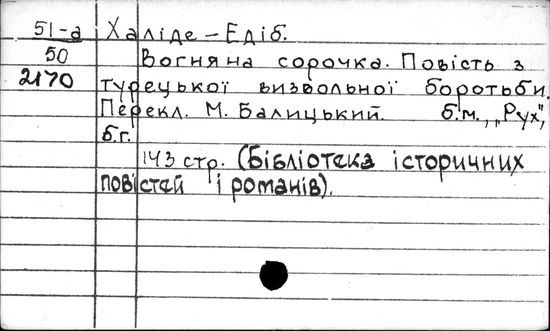 51-а Халіде-Едіб.
50 Вогняна сорочка. Повість з
2170 турецької визвольної боротьби.
Перекл. М. Балицький. б.м., „Рух",
б.г.
143 стр. (Бібліотека історичних
повістей і романів).